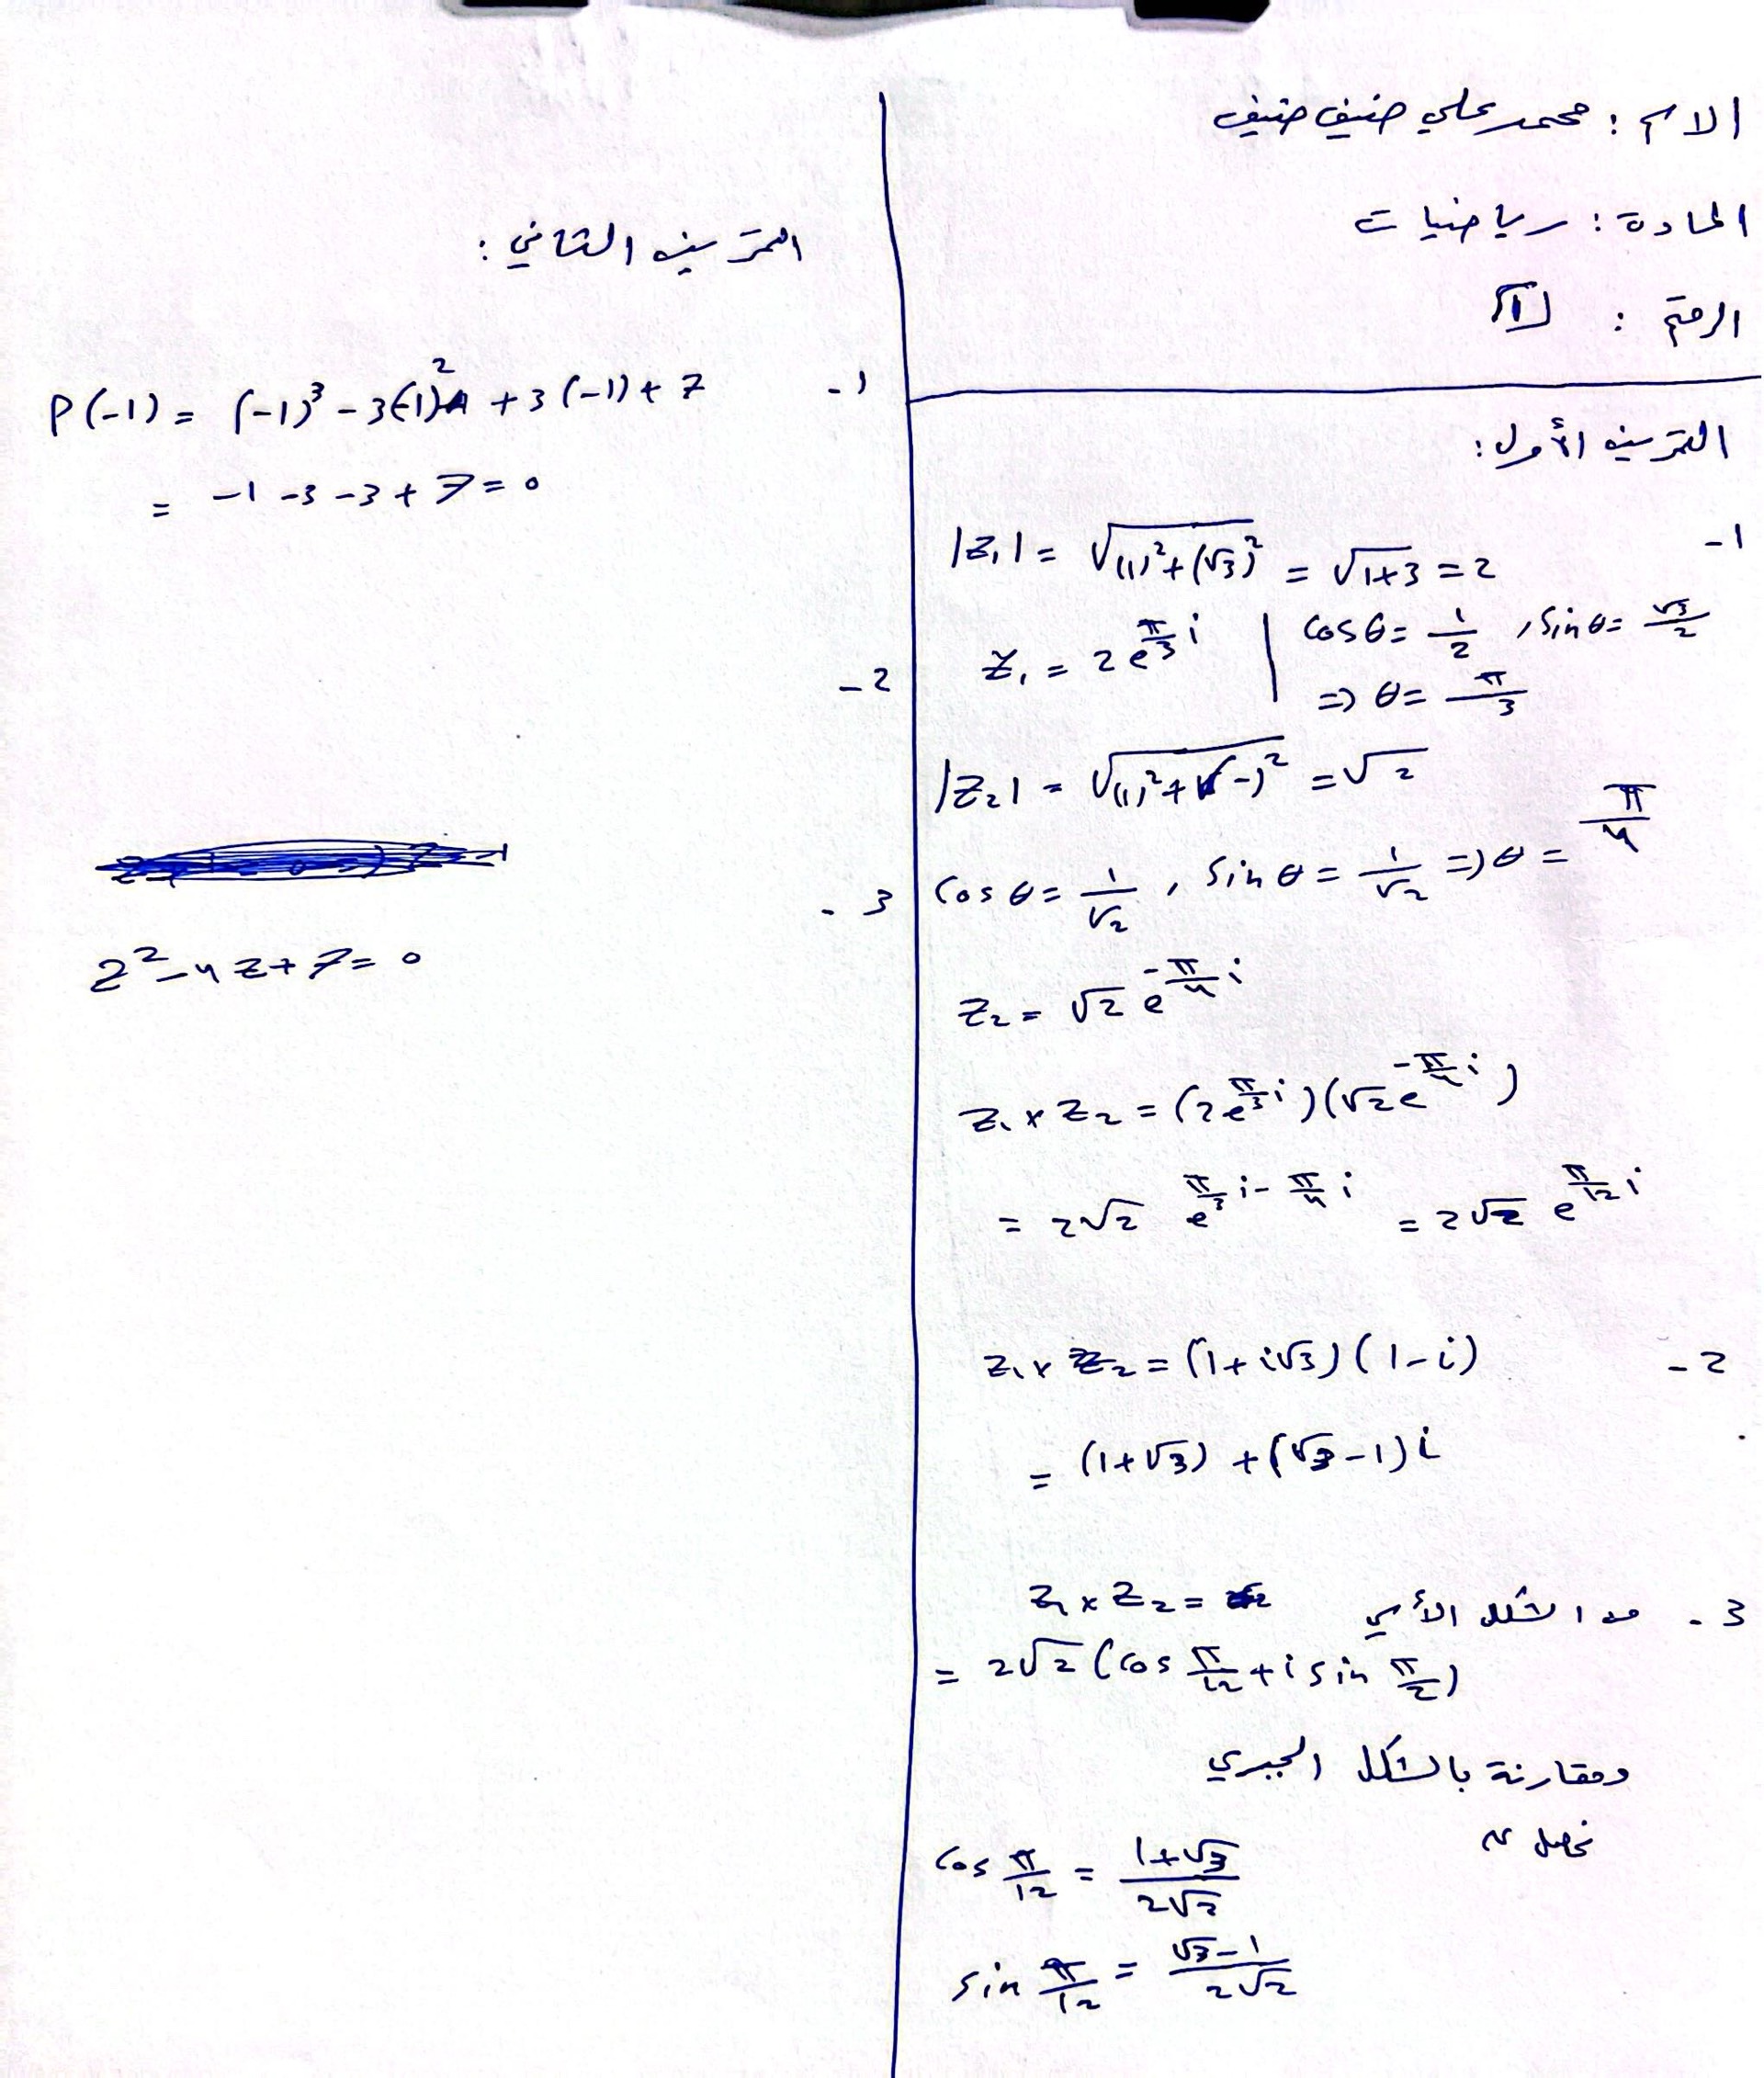 الاسم : محمد علي ضنيف ضنيف
المادة : رياضيات
الرقم : 1
التمرين الأول :
1 -
|z₁| = √((1)²+(√3)²) = √(1+3) = 2
z₁ = 2e^(π/3 i) | cosθ = 1/2 , sinθ = √3/2
=> θ = π/3
|z₂| = √((1)²+(-)²) = √2
cosθ = 1/√2 , sinθ = 1/√2 => θ = π/4
z₂ = √2 e^(-π/4 i)
z₁ × z₂ = (2e^(π/3 i))(√2e^(-π/4 i))
= 2√2 e^(π/3 i - π/4 i) = 2√2 e^(π/12 i)
2 - z₁ × z₂ = (1+i√3)(1-i)
= (1+√3) + (√3-1)i
3 - من الشكل الأسي z₁ × z₂ =
= 2√2 (cos π/12 + i sin π/2)
ومقارنة بالشكل الجبري
نحصل
cos π/12 = (1+√3)/(2√2)
sin π/12 = (√3-1)/(2√2)
التمرين الثاني :
1 - P(-1) = (-1)³ - 3(-1)² + 3(-1) + 7
= -1 -3 -3 + 7 = 0
2 -
3 -
z² - 4z + 7 = 0